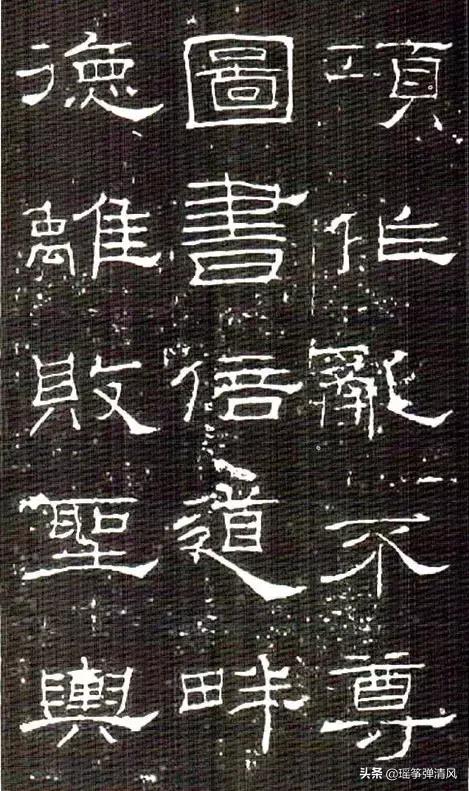 項作亂不尊
圖書倍道畔
德離敗聖輿
头条 @瑶筝弹清风